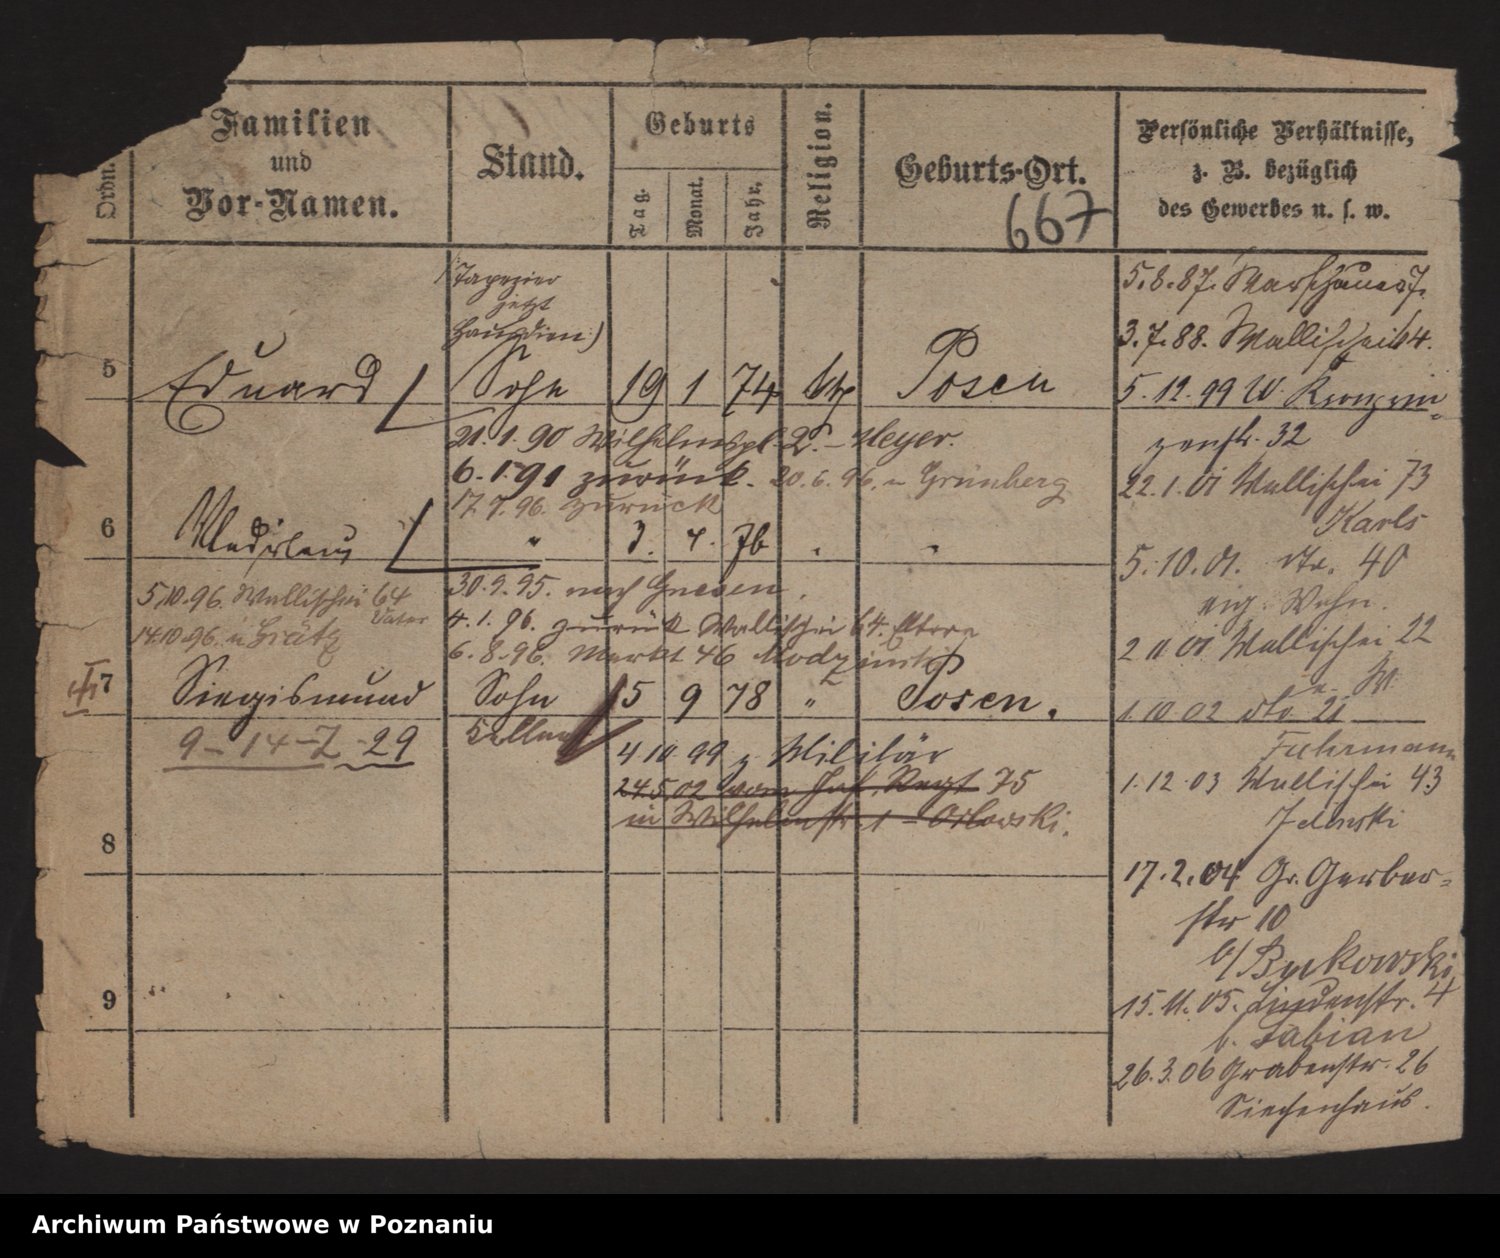 Ordn.
Familien
und
Vor-Namen.
Stand.
Geburts
Tag.
Monat.
Jahr.
Religion.
Geburts-Ort.
667
Persönliche Verhältnisse,
z. B. bezüglich
des Gewerbes u. s. w.
5
Eduard
(Tapezier
jetzt
Hausdien.)
Sohn
19 1 74
Posen
21.1.90 Wilhelmspl. 2. – Meyer.
6.1.91 zurück. 20.6.96. n Grünberg
17.7.96. zurück
6
"
3. 4. 76 " "
5.10.96. Wallischei 64
Vater
14.10.96. n Grätz
30.9.95. nach Gnesen.
4.1.96. zurück Wallischei 64. Eltern
6.8.96. Markt 46
7
Siegismund
Sohn
15 9 78 "
Posen.
9-14-2-29
Kellner
4.10.99 z Militär
24.5.02 vom Inf. Regt 75
in Wilhelmstr. 1 – Orlowski.
8
9
5.8.87. Warschauer 7.
3.7.88. Wallischei 64.
5.12.99 W. Kronprin-
zenstr. 32
22.1.01 Wallischei 73
Karls
5.10.01. dto. 40
eig. Wohn.
2 11 01 Wallischei 22
1.10 02 dto 21
Fuhrmann
1.12.03 Wallischei 43
Jelinski
17.2.04 Gr. Gerber-
str 10
b/ Bykowski
15.11.05. Lindenstr. 4
b. Fabian
26.3.06 Grabenstr. 26
Siechenhaus.
Archiwum Państwowe w Poznaniu